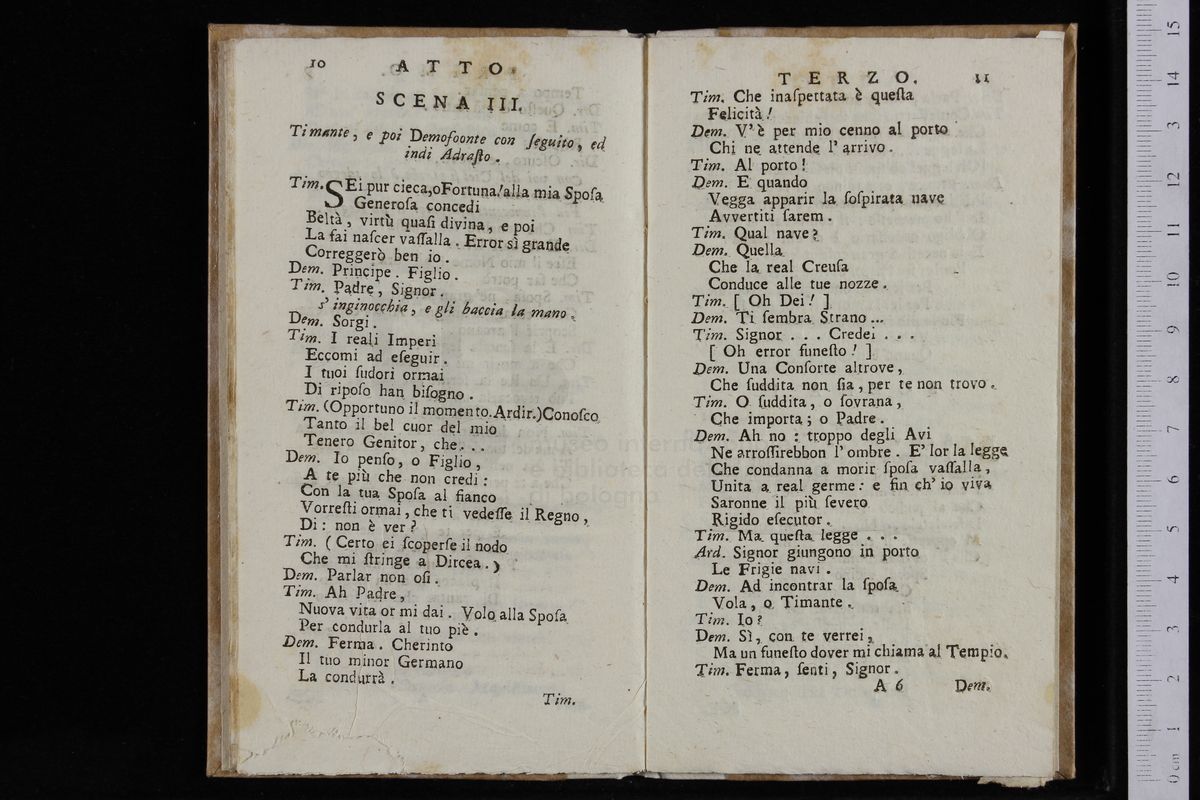 10 ATTO
SCENA III.
Timante, e poi Demofoonte con ſeguito, ed
indi Adraſto.
Tim. SEi pur cieca,oFortuna!alla mia Spoſa
Generoſa concedi
Beltà, virtù quaſi divina, e poi
La fai naſcer vaſſalla. Error sì grande
Correggerò ben io.
Dem. Principe. Figlio.
Tim. Padre, Signor.
s'inginocchia, e gli baccia la mano.
Dem. Sorgi.
Tim. I reali Imperi
Eccomi ad eſeguir.
I tuoi ſudori ormai
Di ripoſo han biſogno.
Tim. (Opportuno il momento.Ardir.)Conoſco
Tanto il bel cuor del mio
Tenero Genitor, che...
Dem. Io penſo, o Figlio,
A te più che non credi:
Con la tua Spoſa al fianco
Vorreſti ormai, che ti vedeſſe il Regno,
Di: non è ver?
Tim. (Certo ei ſcoperſe il nodo
Che mi ſtringe a Dircea.)
Dem. Parlar non oſi.
Tim. Ah Padre,
Nuova vita or mi dai. Volo alla Spoſa
Per condurla al tuo piè.
Dem. Ferma. Cherinto
Il tuo minor Germano
La condurrà.
Tim.
TERZO. 11
Tim. Che inaſpettata è queſta
Felicità!
Dem. V'è per mio cenno al porto
Chi ne attende l'arrivo.
Tim. Al porto!
Dem. E quando
Vegga apparir la ſoſpirata nave
Avvertiti ſarem.
Tim. Qual nave?
Dem. Quella
Che la real Creuſa
Conduce alle tue nozze.
Tim. [ Oh Dei! ]
Dem. Ti ſembra Strano...
Tim. Signor . . . Credei . . .
[ Oh error funeſto! ]
Dem. Una Conſorte altrove,
Che ſuddita non ſia, per te non trovo.
Tim. O ſuddita, o ſovrana,
Che importa; o Padre.
Dem. Ah no: troppo degli Avi
Ne arroſſirebbon l'ombre. E' lor la legge
Che condanna a morir ſpoſa vaſſalla,
Unita a real germe: e fin ch'io viva
Saronne il più ſevero
Rigido eſecutor.
Tim. Ma queſta legge . . .
Ard. Signor giungono in porto
Le Frigie navi.
Dem. Ad incontrar la ſpoſa
Vola, o Timante.
Tim. Io?
Dem. Sì, con te verrei,
Ma un funeſto dover mi chiama al Tempio.
Tim. Ferma, ſenti, Signor.
A 6 Dem.
0 cm 1 2 3 4 5 6 7 8 9 10 11 12 13 14 15